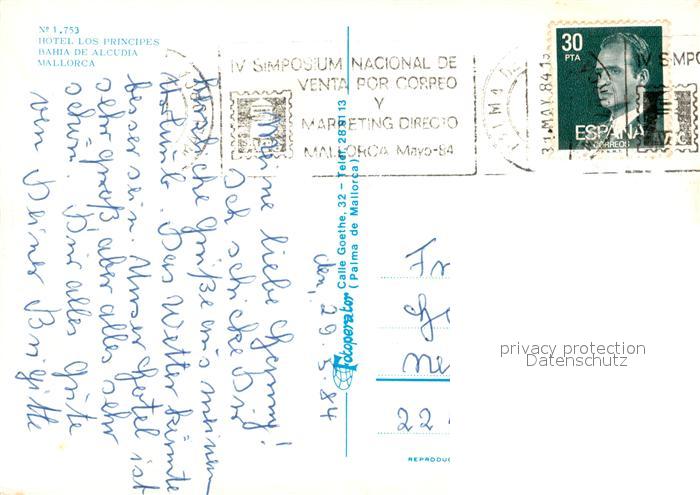 Nº 1.753
HOTEL LOS PRINCIPES
BAHIA DE ALCUDIA
MALLORCA
IV SIMPOSIUM NACIONAL DE
VENTA POR CORREO
Y
MARKETING DIRECTO
MALLORCA Mayo-84
31 MAY 84
30
PTA
ESPAÑA
CORREOS
IV SIMPO
den, 29.5.84
Meine liebe
Ich schicke Dir
herzliche Grüße aus meinem
Urlaub. Das Wetter könnte
besser sein. Unser Hotel ist
sehr groß, aber alles sehr
schön. Dir alles Gute
von Deiner Brigitte
Fotoperator
Calle Goethe, 32 - Telef. 28 81 13
(Palma de Mallorca)
Fr
Ne
22
REPRODUC
privacy protection
Datenschutz